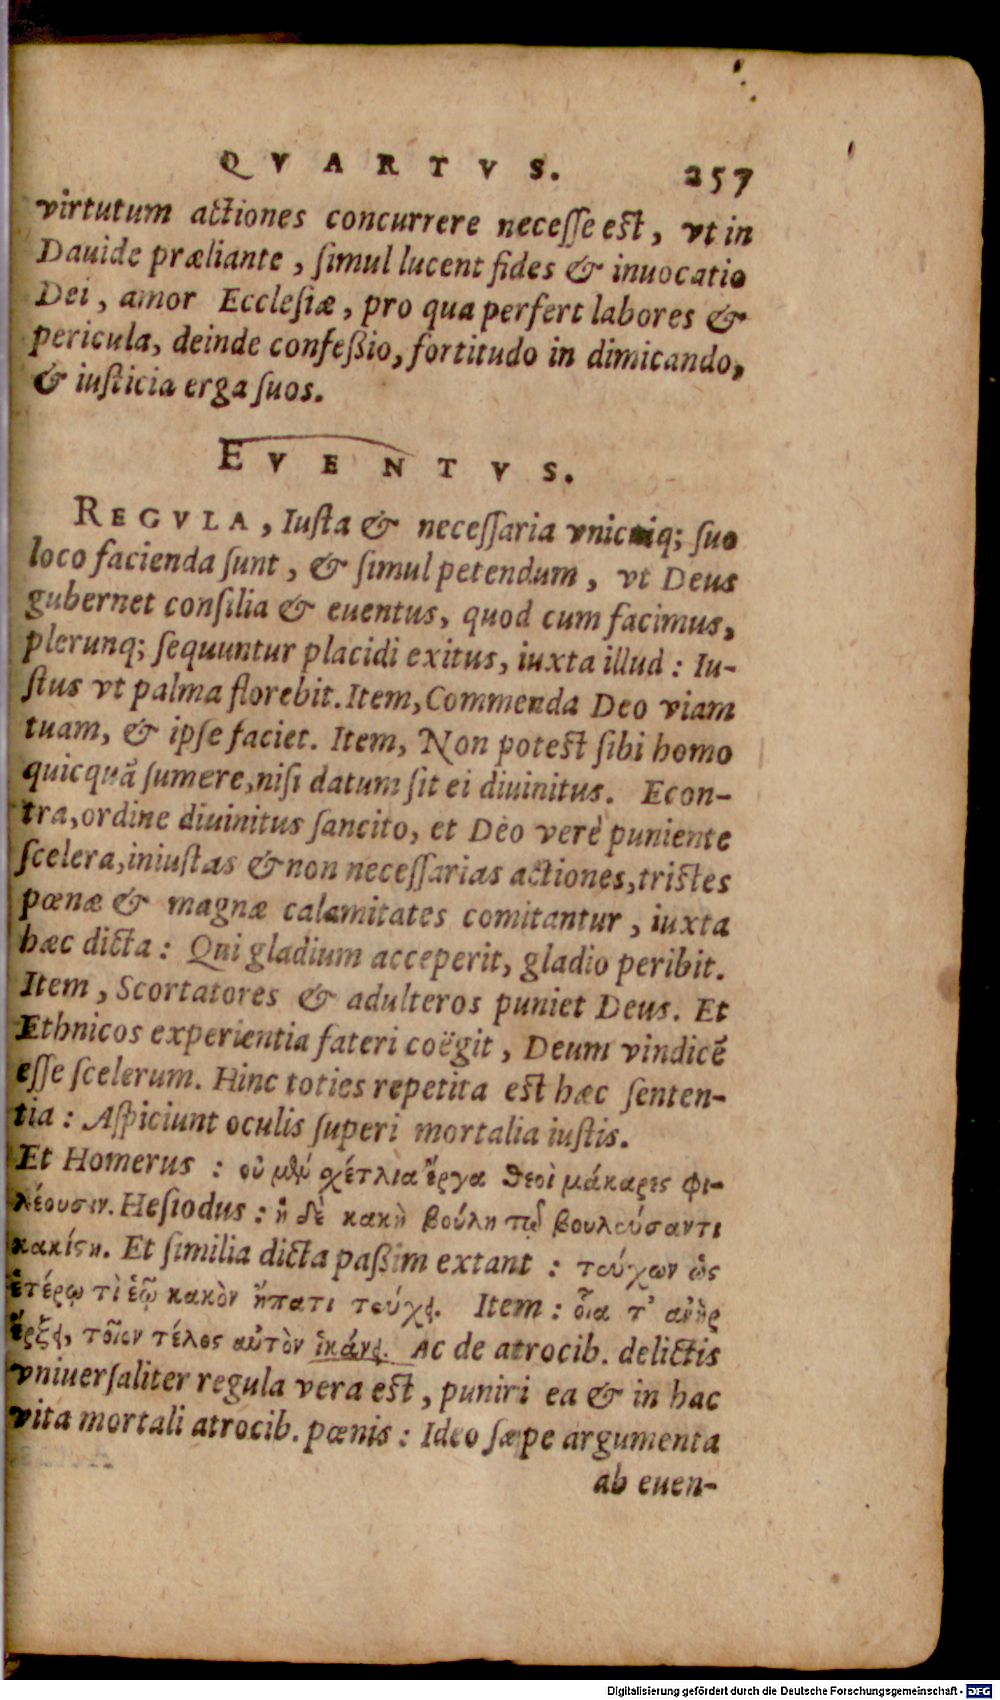 QVARTVS. 257
virtutum actiones concurrere neceſſe est, vt in
Dauide præliante, ſimul lucent fides & inuocatio
Dei, amor Eccleſiæ, pro qua perfert labores &
pericula, deinde confeßio, fortitudo in dimicando,
& iuſticia erga ſuos.
EVENTVS.
REGVLA, Iuſta & neceſſaria vnicuiq; ſuo
loco facienda ſunt, & ſimul petendum, vt Deus
gubernet conſilia & euentus, quod cum facimus,
plerunq; ſequuntur placidi exitus, iuxta illud: Iu-
ſtus vt palma florebit. Item, Commenda Deo viam
tuam, & ipſe faciet. Item, Non potest ſibi homo
quicquā ſumere, niſi datum ſit ei diuinitus. Econ-
tra, ordine diuinitus ſancito, et Deo verè puniente
ſcelera, iniuſtas & non neceſſarias actiones, tristes
pœnæ & magnæ calamitates comitantur, iuxta
hæc dicta: Qui gladium acceperit, gladio peribit.
Item, Scortatores & adulteros puniet Deus. Et
Ethnicos experientia fateri coëgit, Deum vindicē
eſſe ſcelerum. Hinc toties repetita est hæc ſenten-
tia: Aſpiciunt oculis ſuperi mortalia iuſtis.
Et Homerus: οὐ μὲν σχέτλια ἔργα θεοὶ μάκαρες φι-
λέουσιν. Heſiodus: ἡ δὲ κακὴ βουλὴ τῷ βουλεύσαντι
κακίστη. Et ſimilia dicta paßim extant: τεύχων ὡς
ἑτέρῳ τὶ ἑῷ κακὸν ἥπατι τεύχει. Item: οἷα τ' ἀνὴρ
ἔρξει, τοῖον τέλος αὐτὸν ἱκάνει. Ac de atrocib. delictis
vniuerſaliter regula vera est, puniri ea & in hac
vita mortali atrocib. pœnis: Ideo ſæpe argumenta
ab euen-
Digitalisierung gefördert durch die Deutsche Forschungsgemeinschaft - DFG